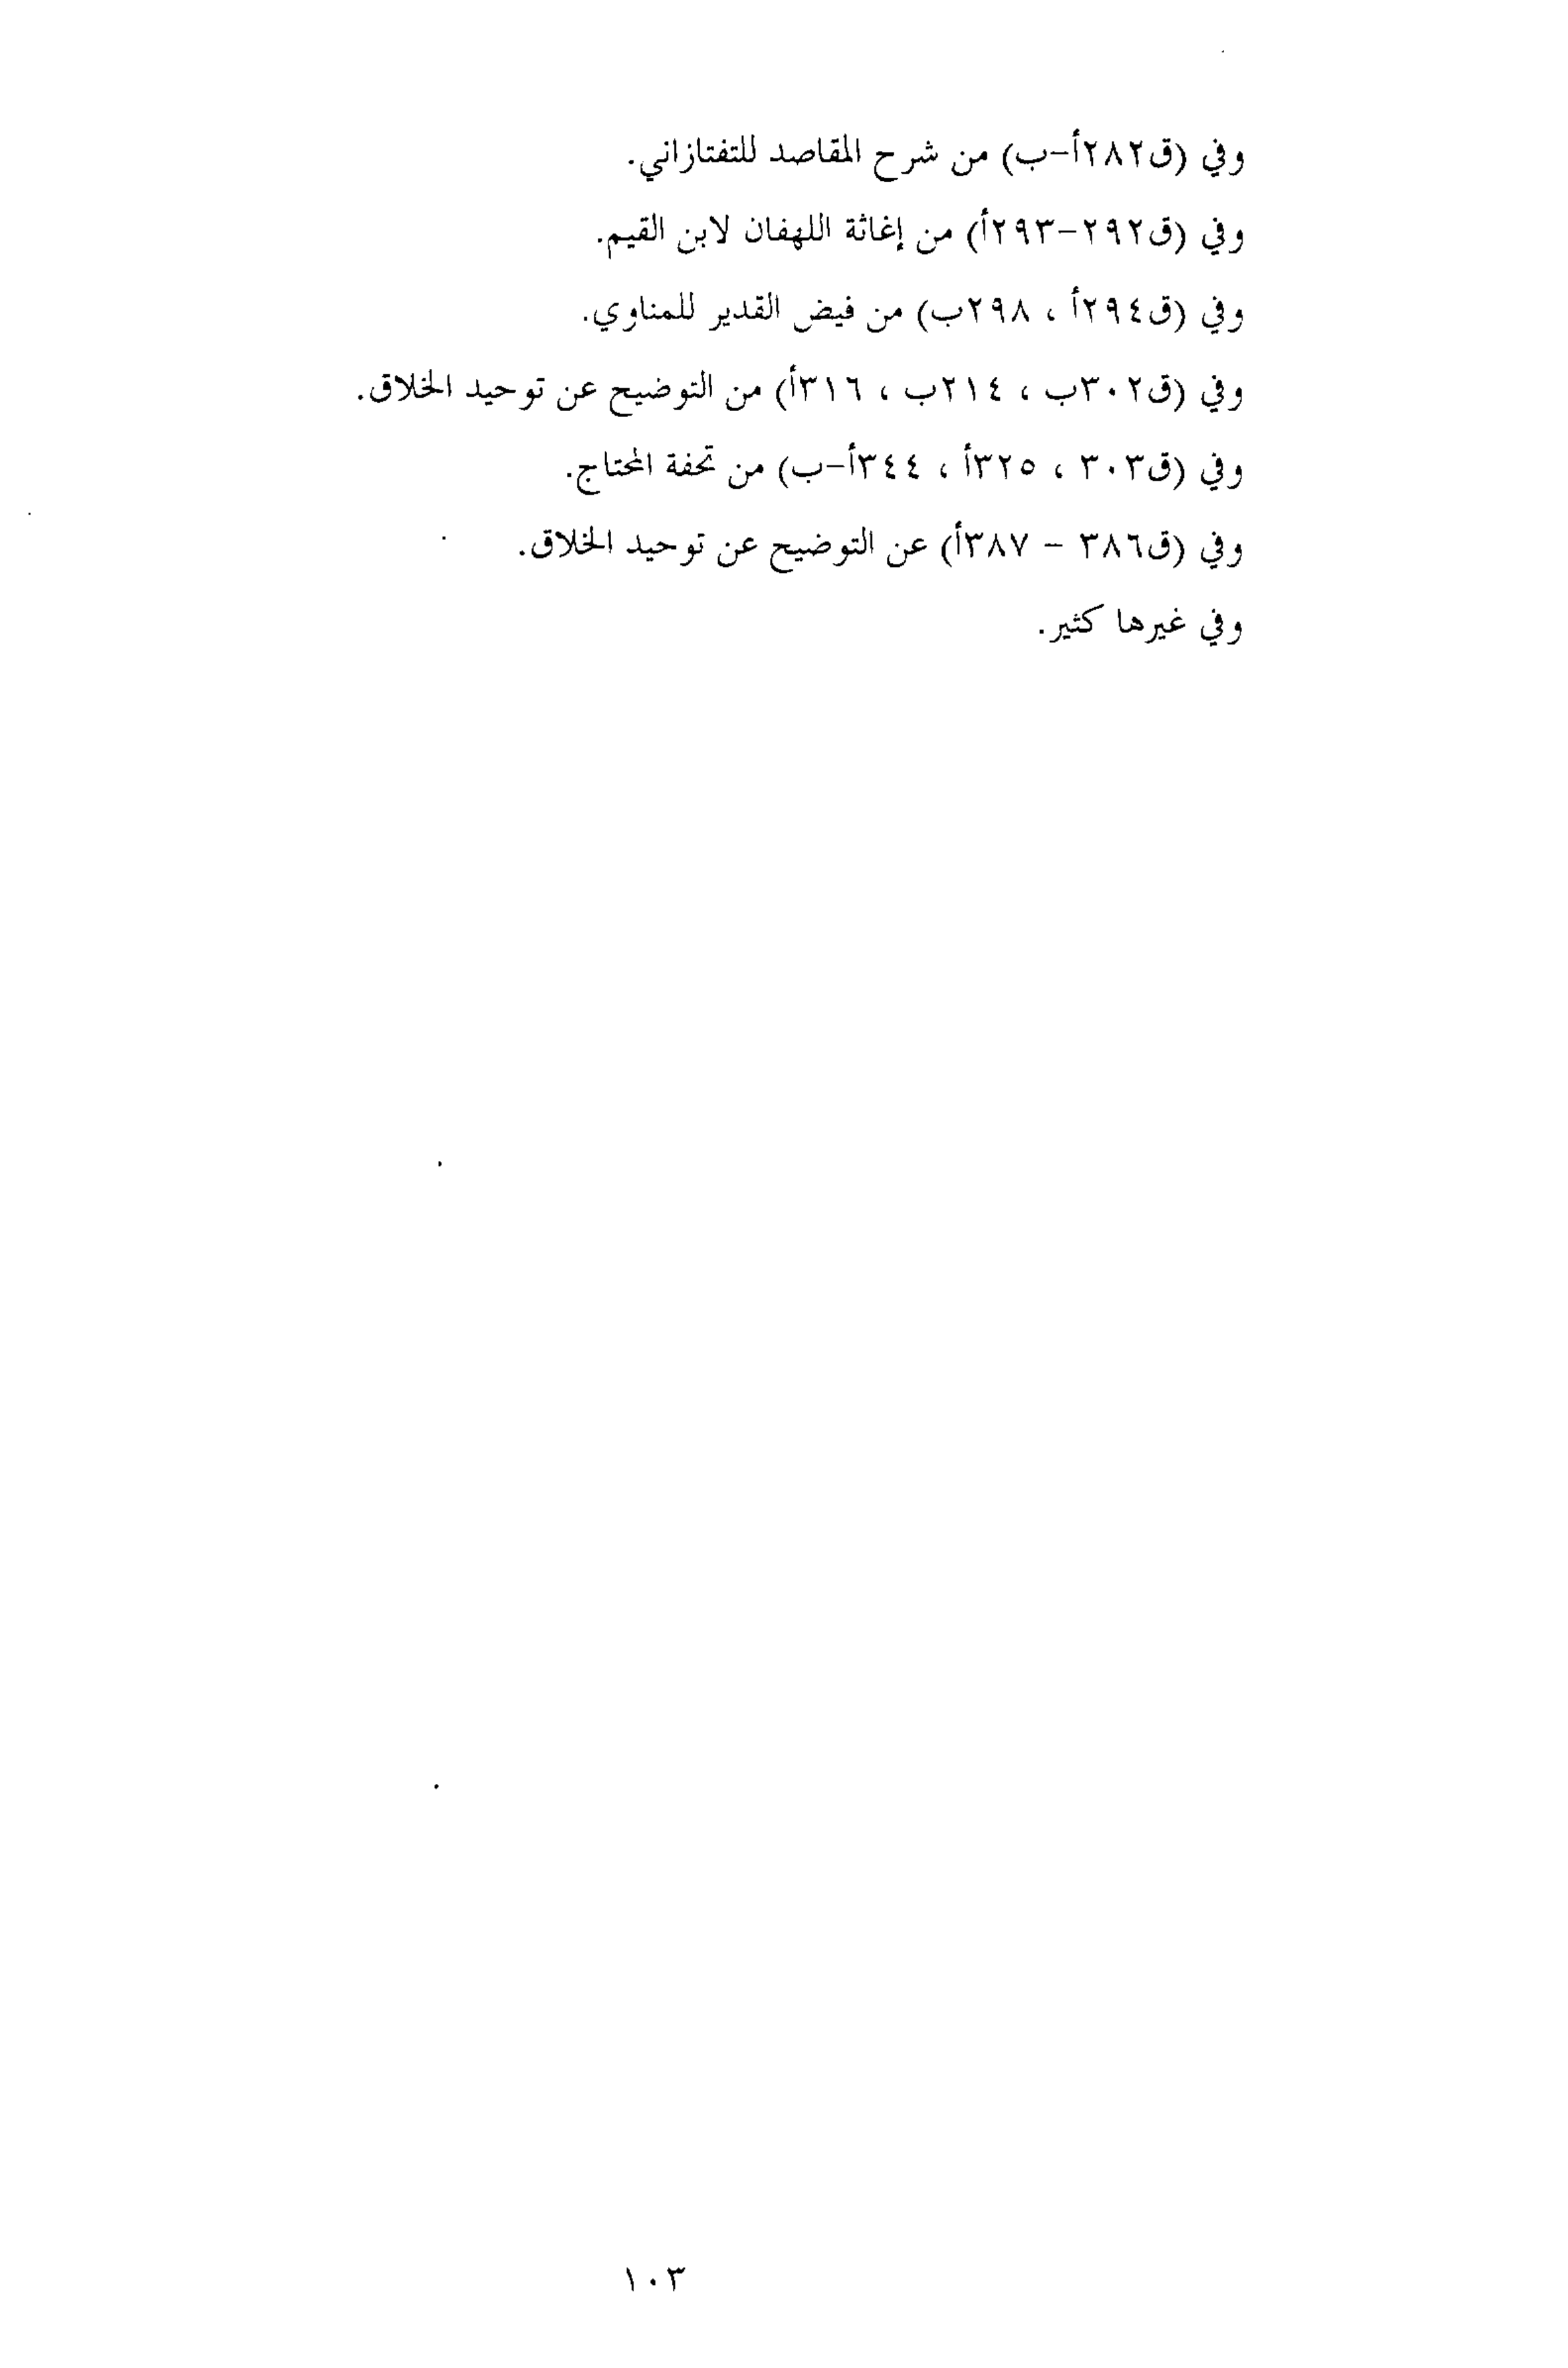 وفي (ق٢٨٢أ-ب) من شرح المقاصد للتفتازاني.
وفي (ق٢٩٢-٢٩٣أ) من إغاثة اللهفان لابن القيم.
وفي (ق٢٩٤أ ، ٢٩٨ب) من فيض القدير للمناوي.
وفي (ق٣٠٢ب ، ٢١٤ب ، ٣١٦أ) من التوضيح عن توحيد الخلاق.
وفي (ق٣٠٣ ، ٣٢٥أ ، ٣٤٤أ-ب) من تحفة المحتاج.
وفي (ق٣٨٦ - ٣٨٧أ) عن التوضيح عن توحيد الخلاق.
وفي غيرها كثير.
١٠٣